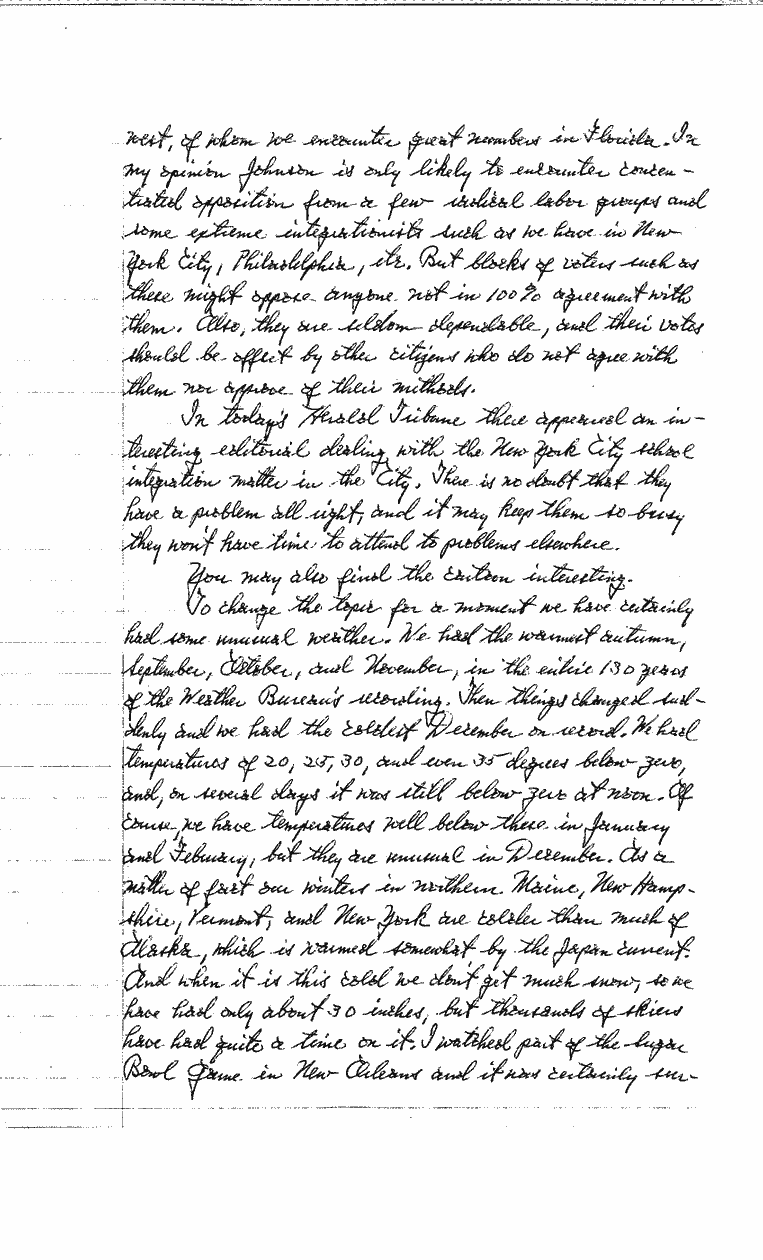 west, of whom we encounter great numbers in Florida. In
my opinion Johnson is only likely to encounter concen-
trated opposition from a few radical labor groups and
some extreme integrationists such as we have in New
York City, Philadelphia, etc. But blocks of voters such as
these might oppose anyone not in 100% agreement with
them. Also, they are seldom dependable, and their votes
should be offset by other citizens who do not agree with
them nor approve of their methods.
In today's Herald Tribune there appeared an in-
teresting editorial dealing with the New York City school
integration matter in the City. There is no doubt that they
have a problem all right, and it may keep them so busy
they won't have time to attend to problems elsewhere.
You may also find the cartoon interesting.
To change the topic for a moment we have certainly
had some unusual weather. We had the warmest autumn,
September, October, and November, in the entire 130 years
of the Weather Bureau's recording. Then things changed sud-
denly and we had the coldest December on record. We had
temperatures of 20, 25, 30, and even 35 degrees below zero,
and, on several days it was still below zero at noon. Of
course, we have temperatures well below these in January
and February, but they are unusual in December. As a
matter of fact our winters in northern Maine, New Hamp-
shire, Vermont, and New York are colder than much of
Alaska, which is warmed somewhat by the Japan current.
And when it is this cold we don't get much snow, so we
have had only about 30 inches, but thousands of skiers
have had quite a time on it. I watched part of the Sugar
Bowl Game in New Orleans and it was certainly sur-